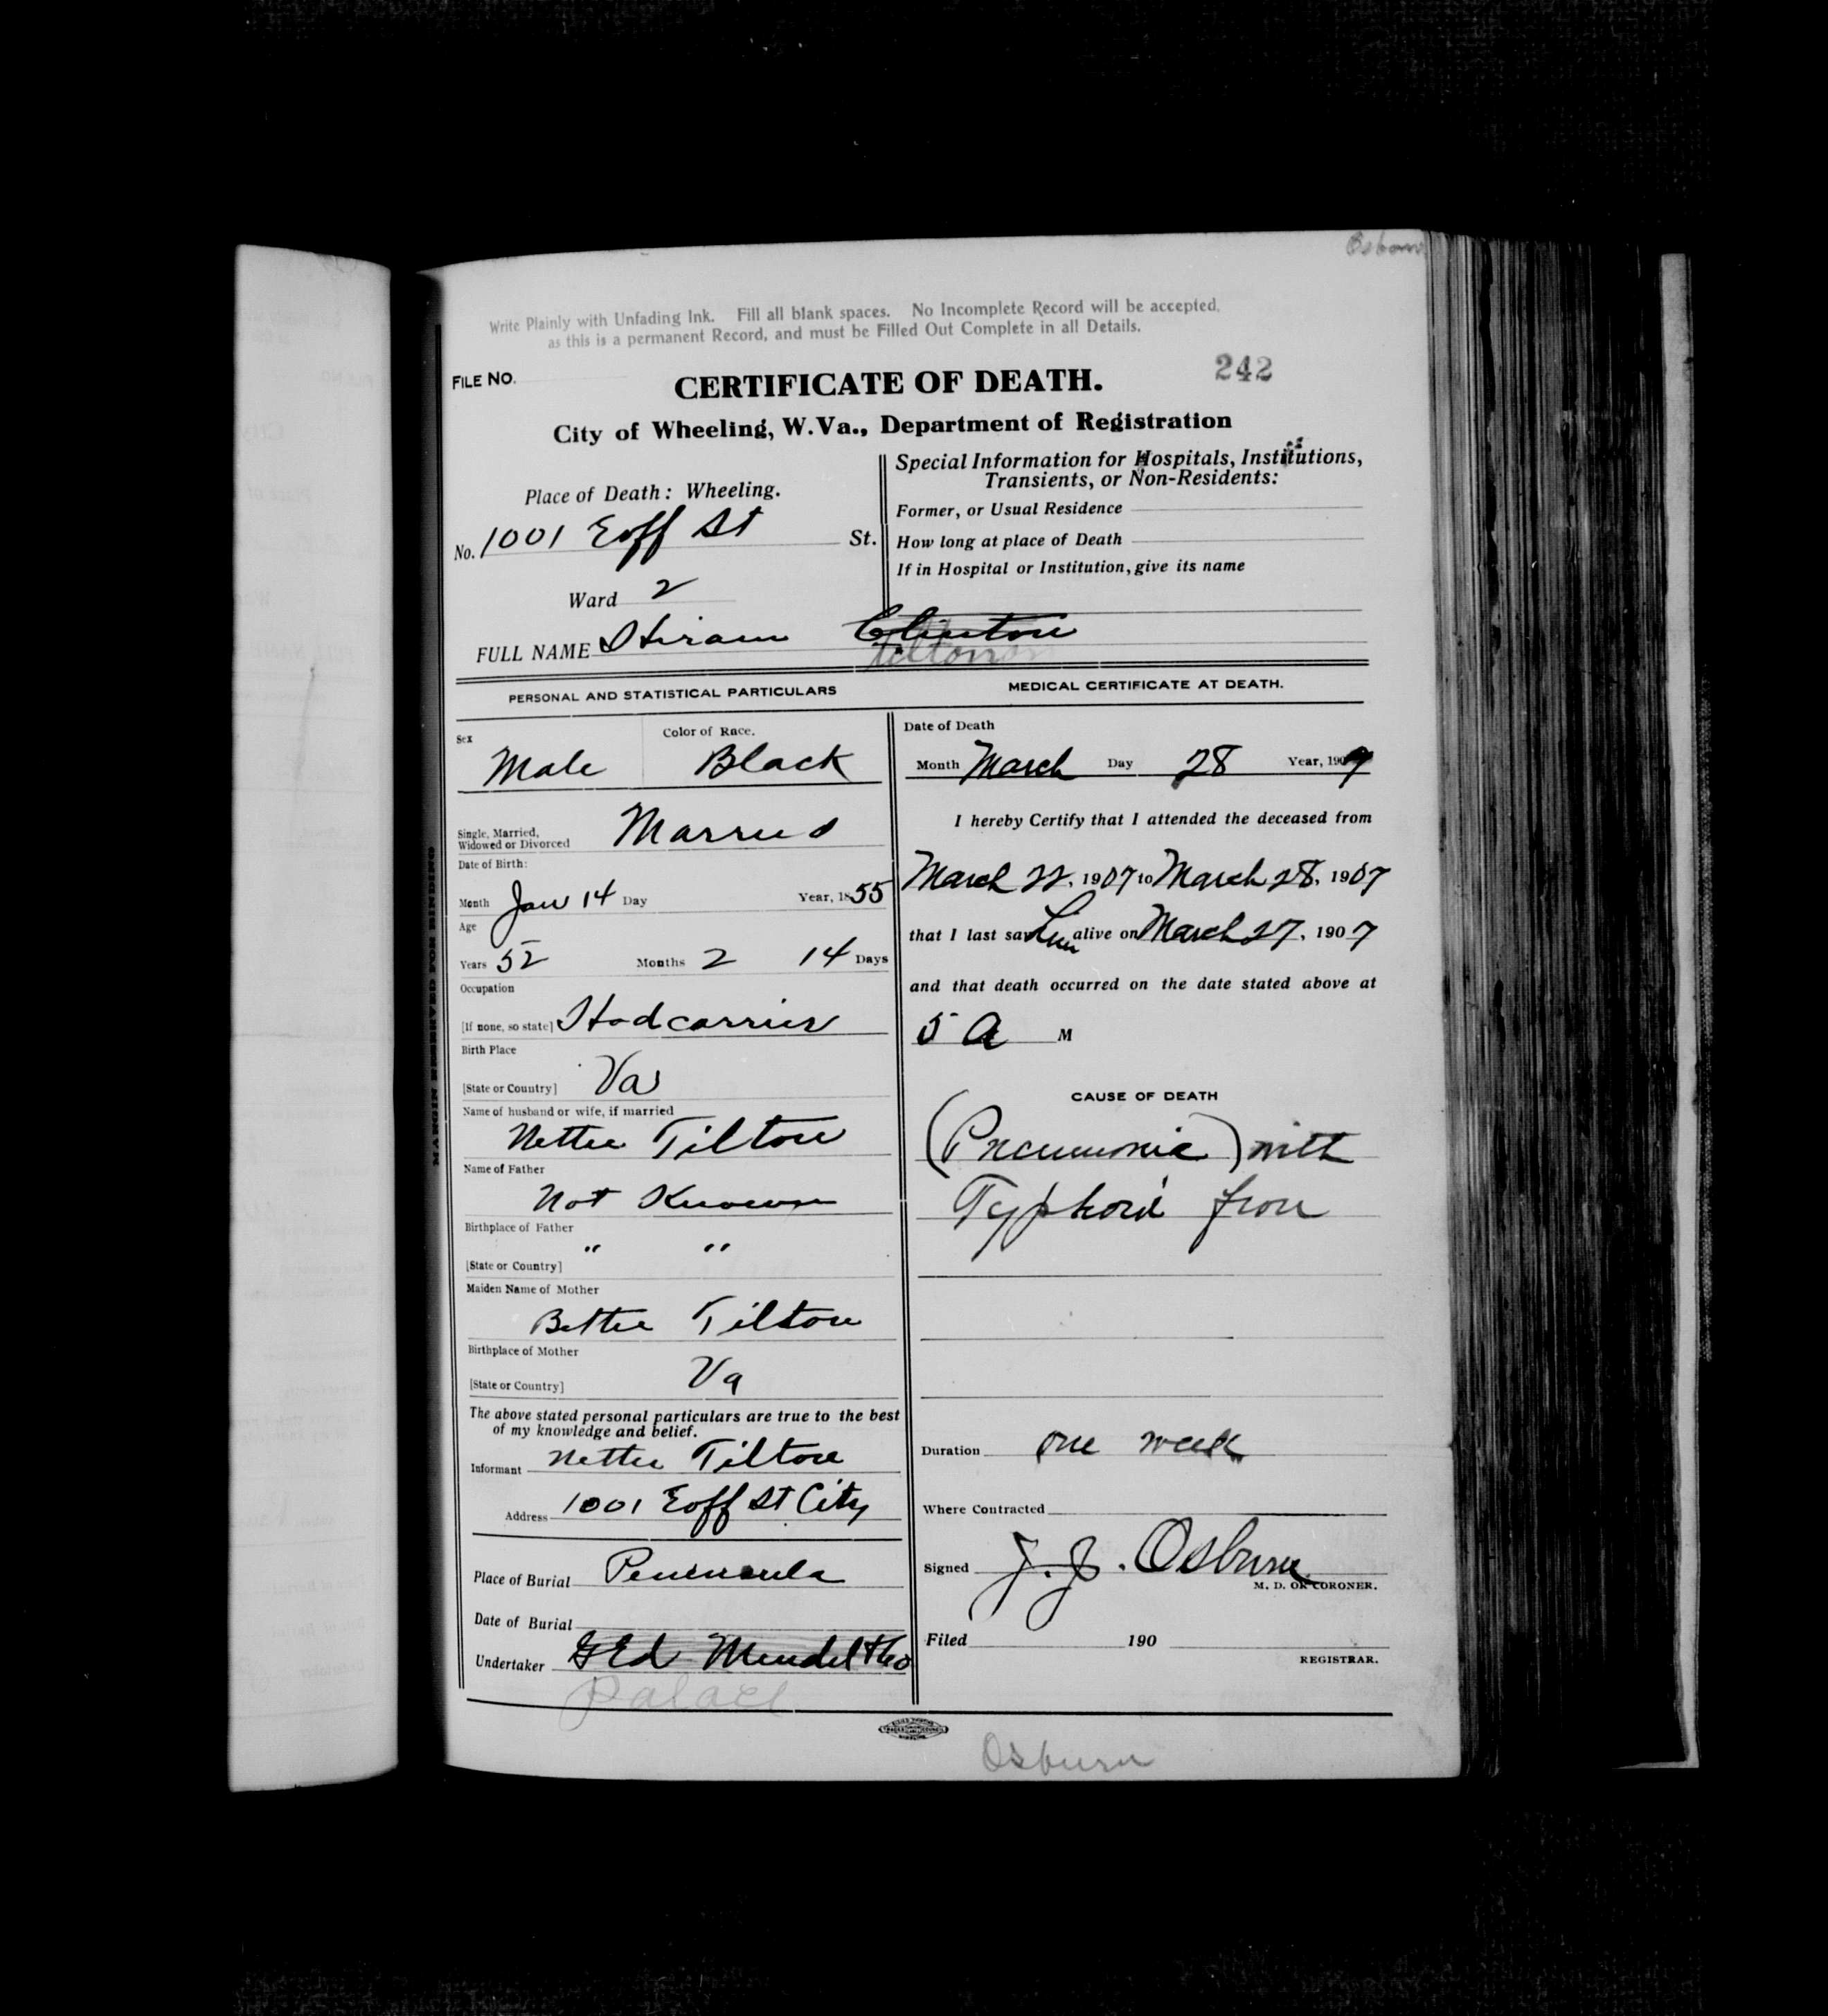 Osborn
Write Plainly with Unfading Ink. Fill all blank spaces. No Incomplete Record will be accepted,
as this is a permanent Record, and must be Filled Out Complete in all Details.
FILE NO.
242
CERTIFICATE OF DEATH.
City of Wheeling, W.Va., Department of Registration
Place of Death: Wheeling.
No. 1001 Eoff St St.
Ward 2
Special Information for Hospitals, Institutions,
Transients, or Non-Residents:
Former, or Usual Residence
How long at place of Death
If in Hospital or Institution, give its name
FULL NAME Hiram Clinton
Tilton
PERSONAL AND STATISTICAL PARTICULARS
Sex Male
Color of Race. Black
Single, Married,
Widowed or Divorced Married
Date of Birth:
Month Jan 14 Day Year, 1855
Age
Years 52 Months 2 14 Days
Occupation
[If none, so state] Hodcarrier
Birth Place
[State or Country] Va
Name of husband or wife, if married
Nettie Tilton
Name of Father
Not Known
Birthplace of Father
[State or Country] " "
Maiden Name of Mother
Bettie Tilton
Birthplace of Mother
[State or Country] Va
The above stated personal particulars are true to the best
of my knowledge and belief.
Informant Nettie Tilton
Address 1001 Eoff St City
Place of Burial Peninsula
Date of Burial
Undertaker G Ed Mendel & Co
Palace
MEDICAL CERTIFICATE AT DEATH.
Date of Death
Month March Day 28 Year, 1907
I hereby Certify that I attended the deceased from
March 22, 1907 to March 28, 1907
that I last saw him alive on March 27, 1907
and that death occurred on the date stated above at
5 A M
CAUSE OF DEATH
(Pneumonia) with
Typhoid
Duration one week
Where Contracted
Signed J. J. Osburn
M. D. OR CORONER.
Filed 190
REGISTRAR.
Osburn
MARGIN RESERVED FOR BINDING